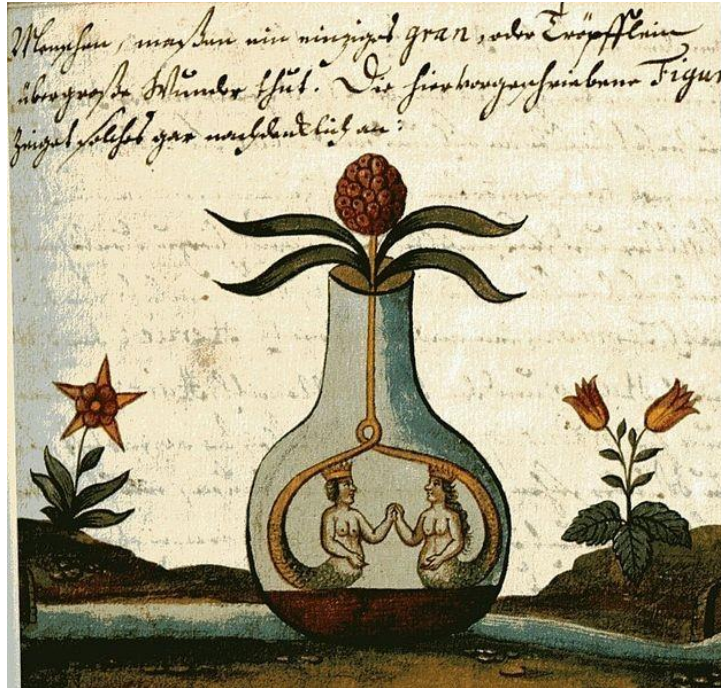 Menschen, maßen ein einziges gran, oder Tröpfflein
übergroße Wunder thut. Die hiervorgeschriebene Figur
Zeiget solches gar nachdencklich an: